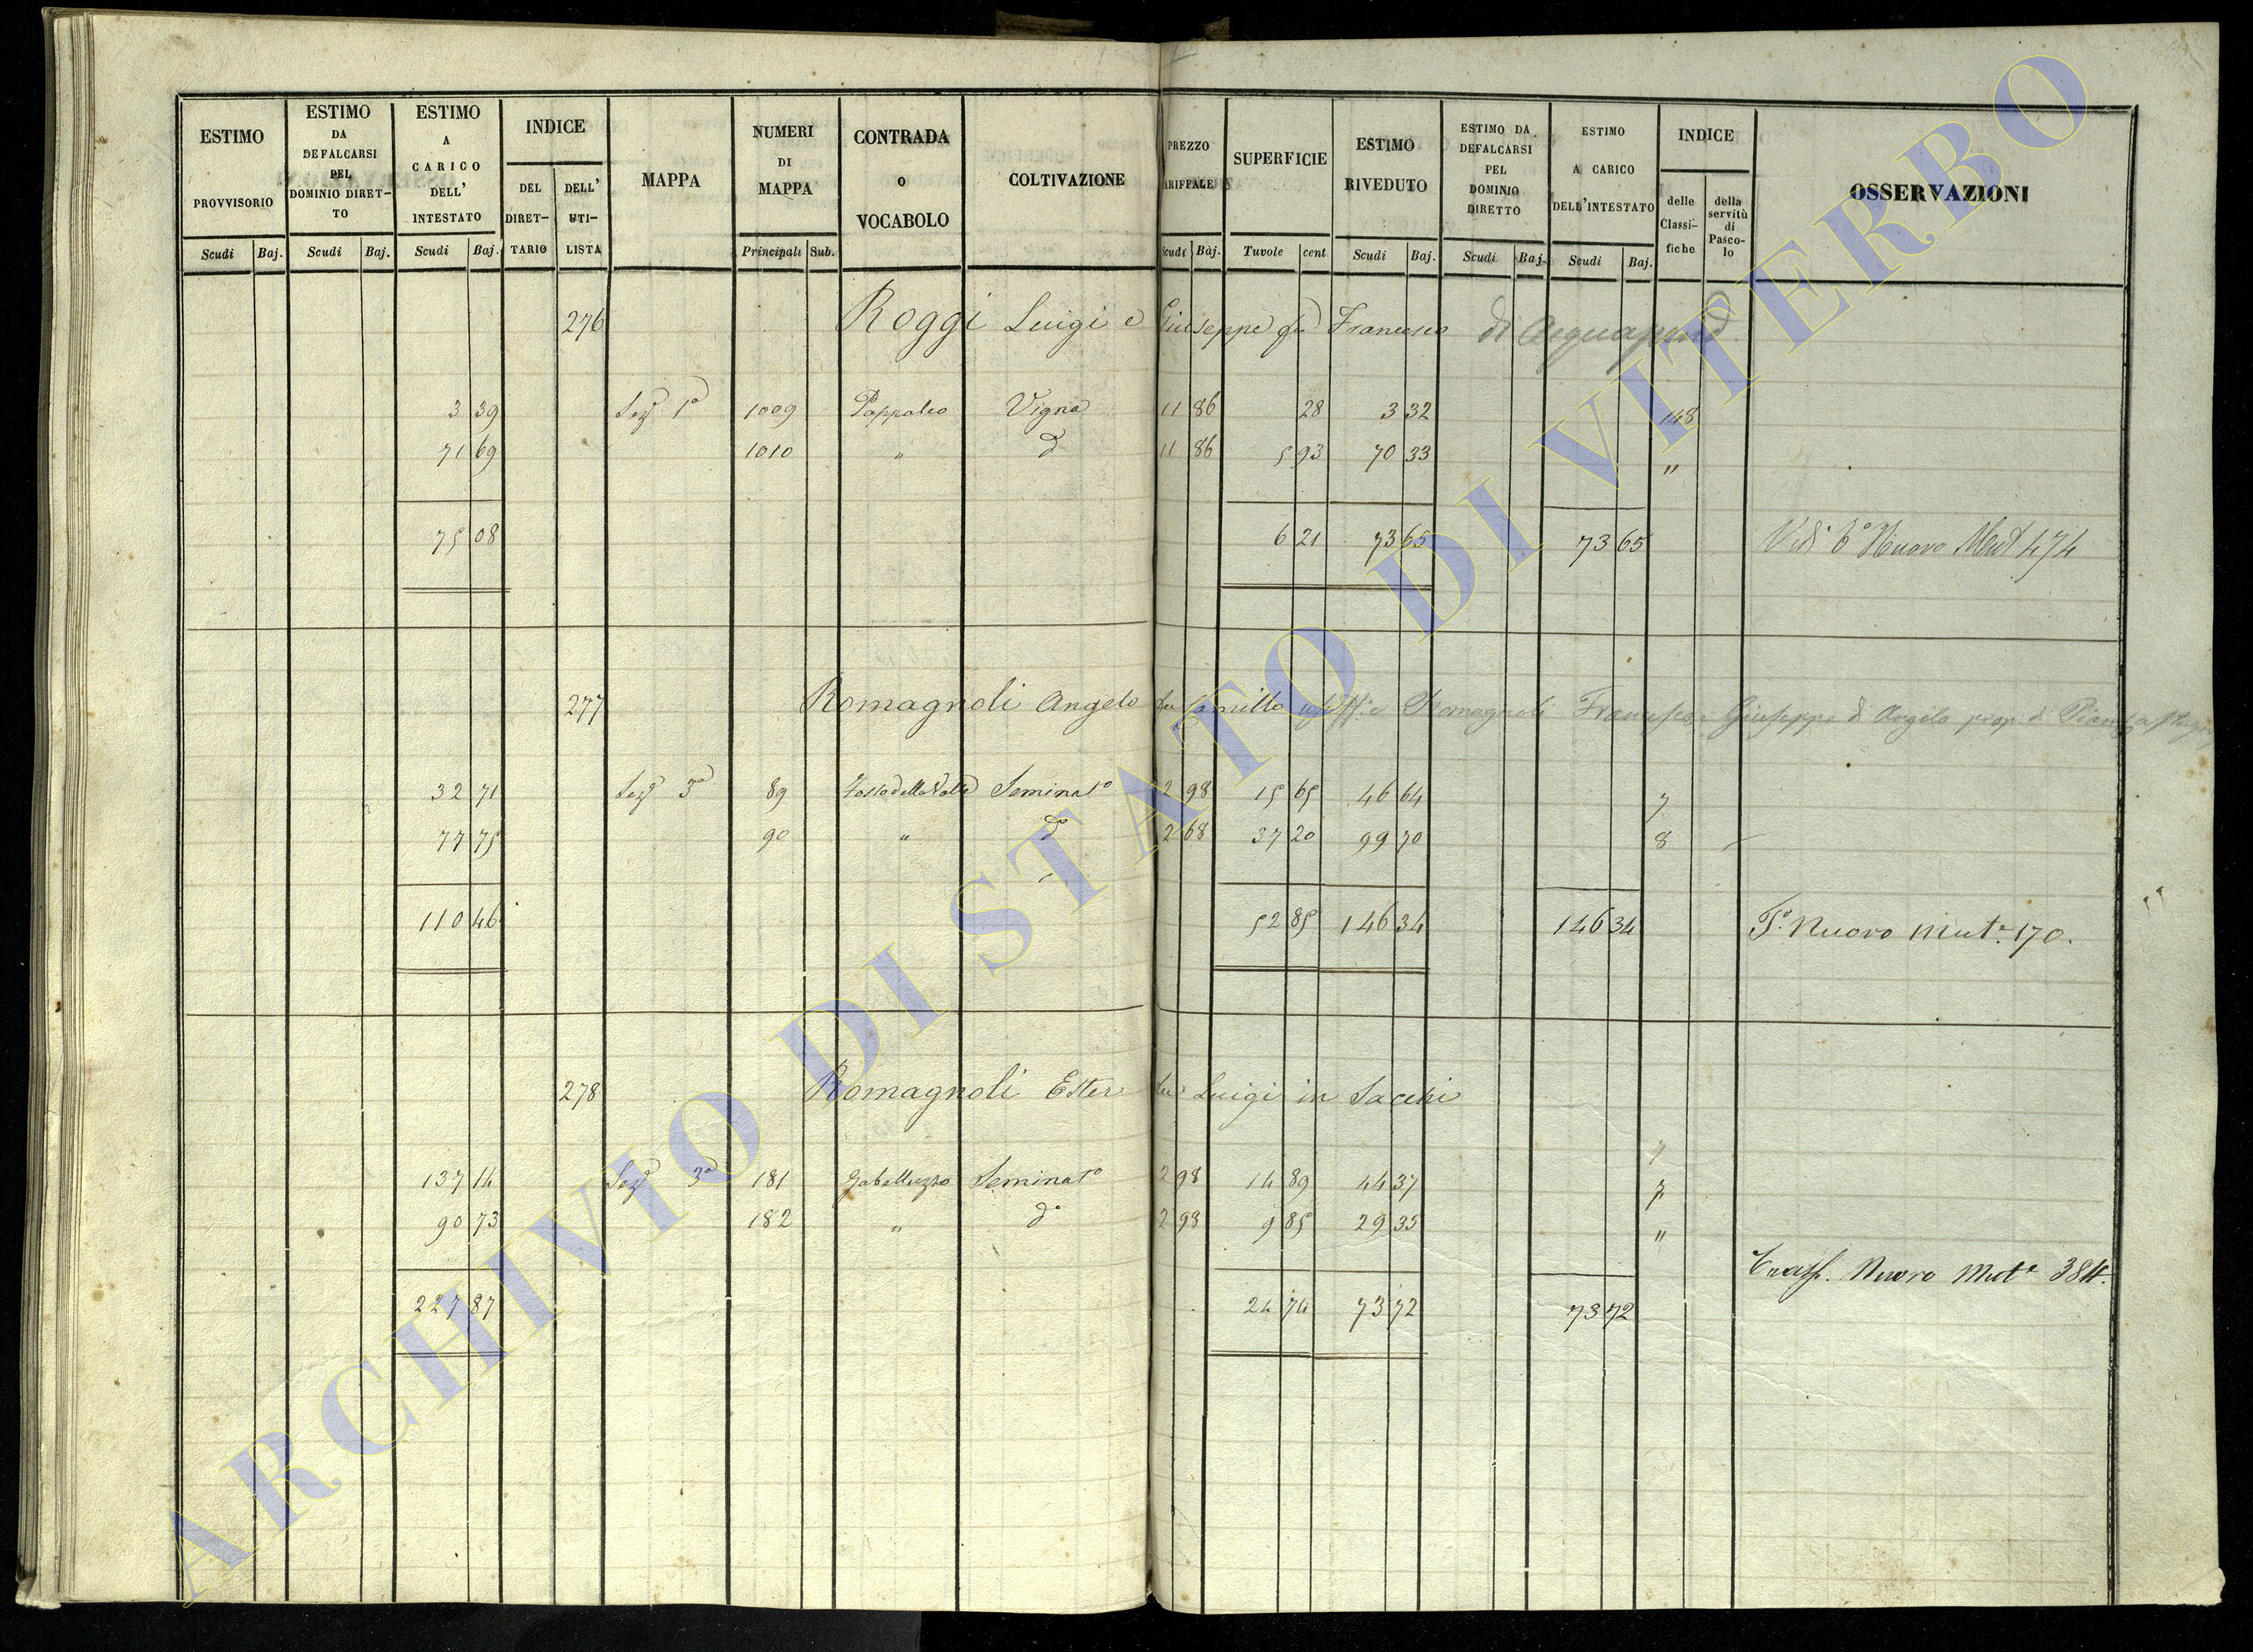 ESTIMO PROVVISORIO
ESTIMO DA DEFALCARSI PEL DOMINIO DIRET-TO
ESTIMO A CARICO DELL' INTESTATO
INDICE
DEL DIRET-TARIO
DELL' UTI-LISTA
MAPPA
NUMERI DI MAPPA
CONTRADA O VOCABOLO
COLTIVAZIONE
PREZZO ARIFFALE
SUPERFICIE
ESTIMO RIVEDUTO
ESTIMO DA DEFALCARSI PEL DOMINIO DIRETTO
ESTIMO A CARICO DELL'INTESTATO
INDICE
delle Classi-fiche
della servitù di Pasco-lo
OSSERVAZIONI
Scudi Baj. Scudi Baj. Scudi Baj. Principali Sub. Scudi Baj. Tavole cent Scudi Baj. Scudi Baj. Scudi Baj.
276 Roggi Luigi e Giuseppe fu Francesco di Acquapend
3 39 Sez 1a 1009 Pappaleo Vigna 11 86 28 3 32 148
71 69 1010 " d 11 86 5 93 70 33 "
75 08 6 21 73 65 73 65 Nuovo Mut 474
277 Romagnoli Angelo fu Camillo Romagnoli Francesco Giuseppe di Angelo prop. di
32 71 Sez 3a 89 Fosso della Valle Seminato 2 98 15 65 46 64 7
77 75 90 " do 2 68 37 20 99 70 8
110 46 52 85 146 34 146 34 To. Nuovo Mut. 170.
278 Romagnoli Ester fu Luigi in Sacchi
7
137 14 Sez 3a 181 Gabelluzzo Seminato 2 98 14 89 44 37 7
90 73 182 " do 2 98 9 85 29 35 "
Trasp. Nuovo Mut. 384.
227 87 24 74 73 72 73 72
ARCHIVIO DI STATO DI VITERBO